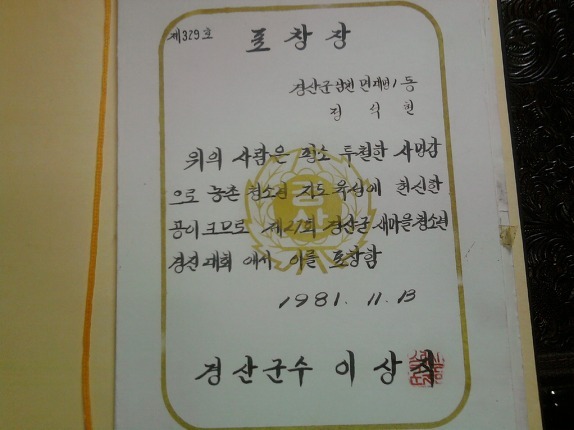 제329호
표창장
경산군 남천면 대명1동
정식현
위의 사람은 평소 투철한 사명감
으로 농촌 청소년 지도육성에 헌신한
공이 크므로 제27회 경산군 새마을청소년
경진대회에서 이를 표창함
1981. 11. 13
경산군수 이상직